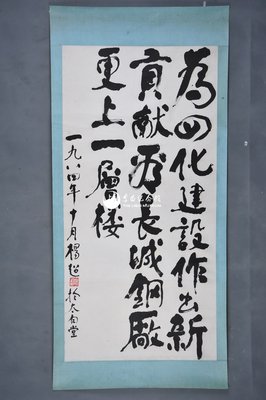 為四化建設作出新
貢献長城鋼廠
更上一層楼
一九八四年十月楊超於太白堂